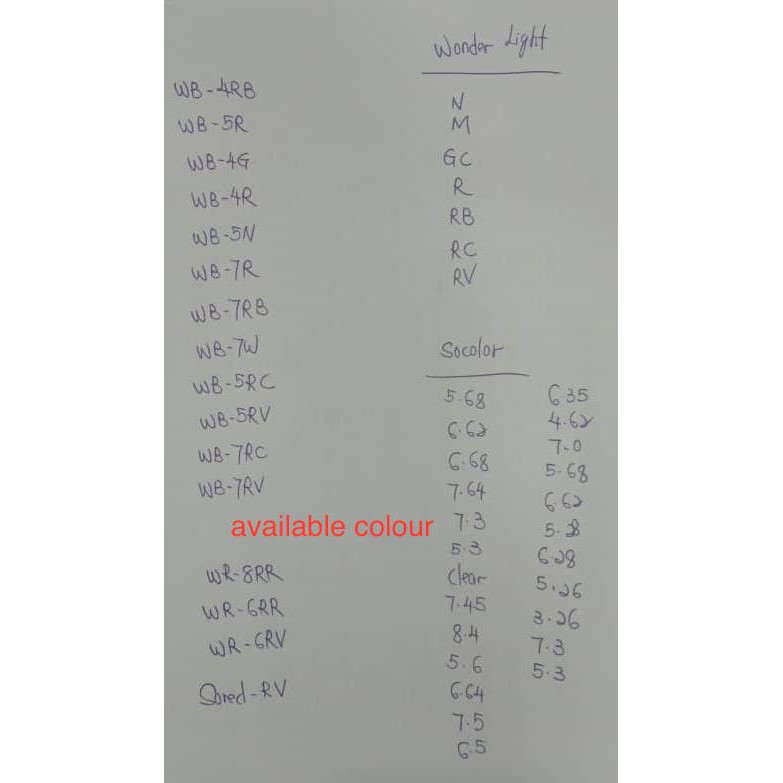 WB-4RB
WB-5R
WB-4G
WB-4R
WB-5N
WB-7R
WB-7RB
WB-7W
WB-5RC
WB-5RV
WB-7RC
WB-7RV
available colour
WR-8RR
WR-6RR
WR-6RV
Sored-RV
Wonder Light
N
M
GC
R
RB
RC
RV
Socolor
5.68
6.62
6.68
7.64
7.3
5.3
Clear
7.45
8.4
5.6
6.64
7.5
6.5
6.35
4.62
7.0
5.68
6.62
5.28
6.28
5.26
3.26
7.3
5.3